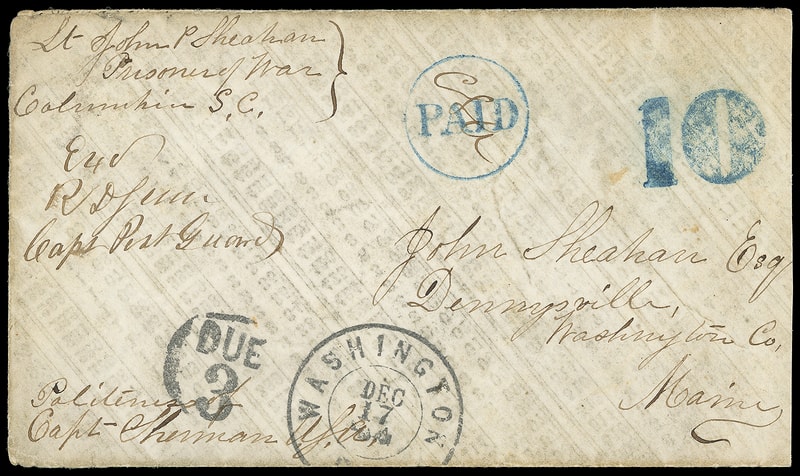 Lt John P Sheahan
Prisoner of War
Columbia S.C.
PAID
10
Exd
Capt Post Guard
John Sheahan Esq
Dennysville,
Washington Co,
Maine
DUE
3
WASHINGTON
DEC
17
Politeness of
Capt Sherman